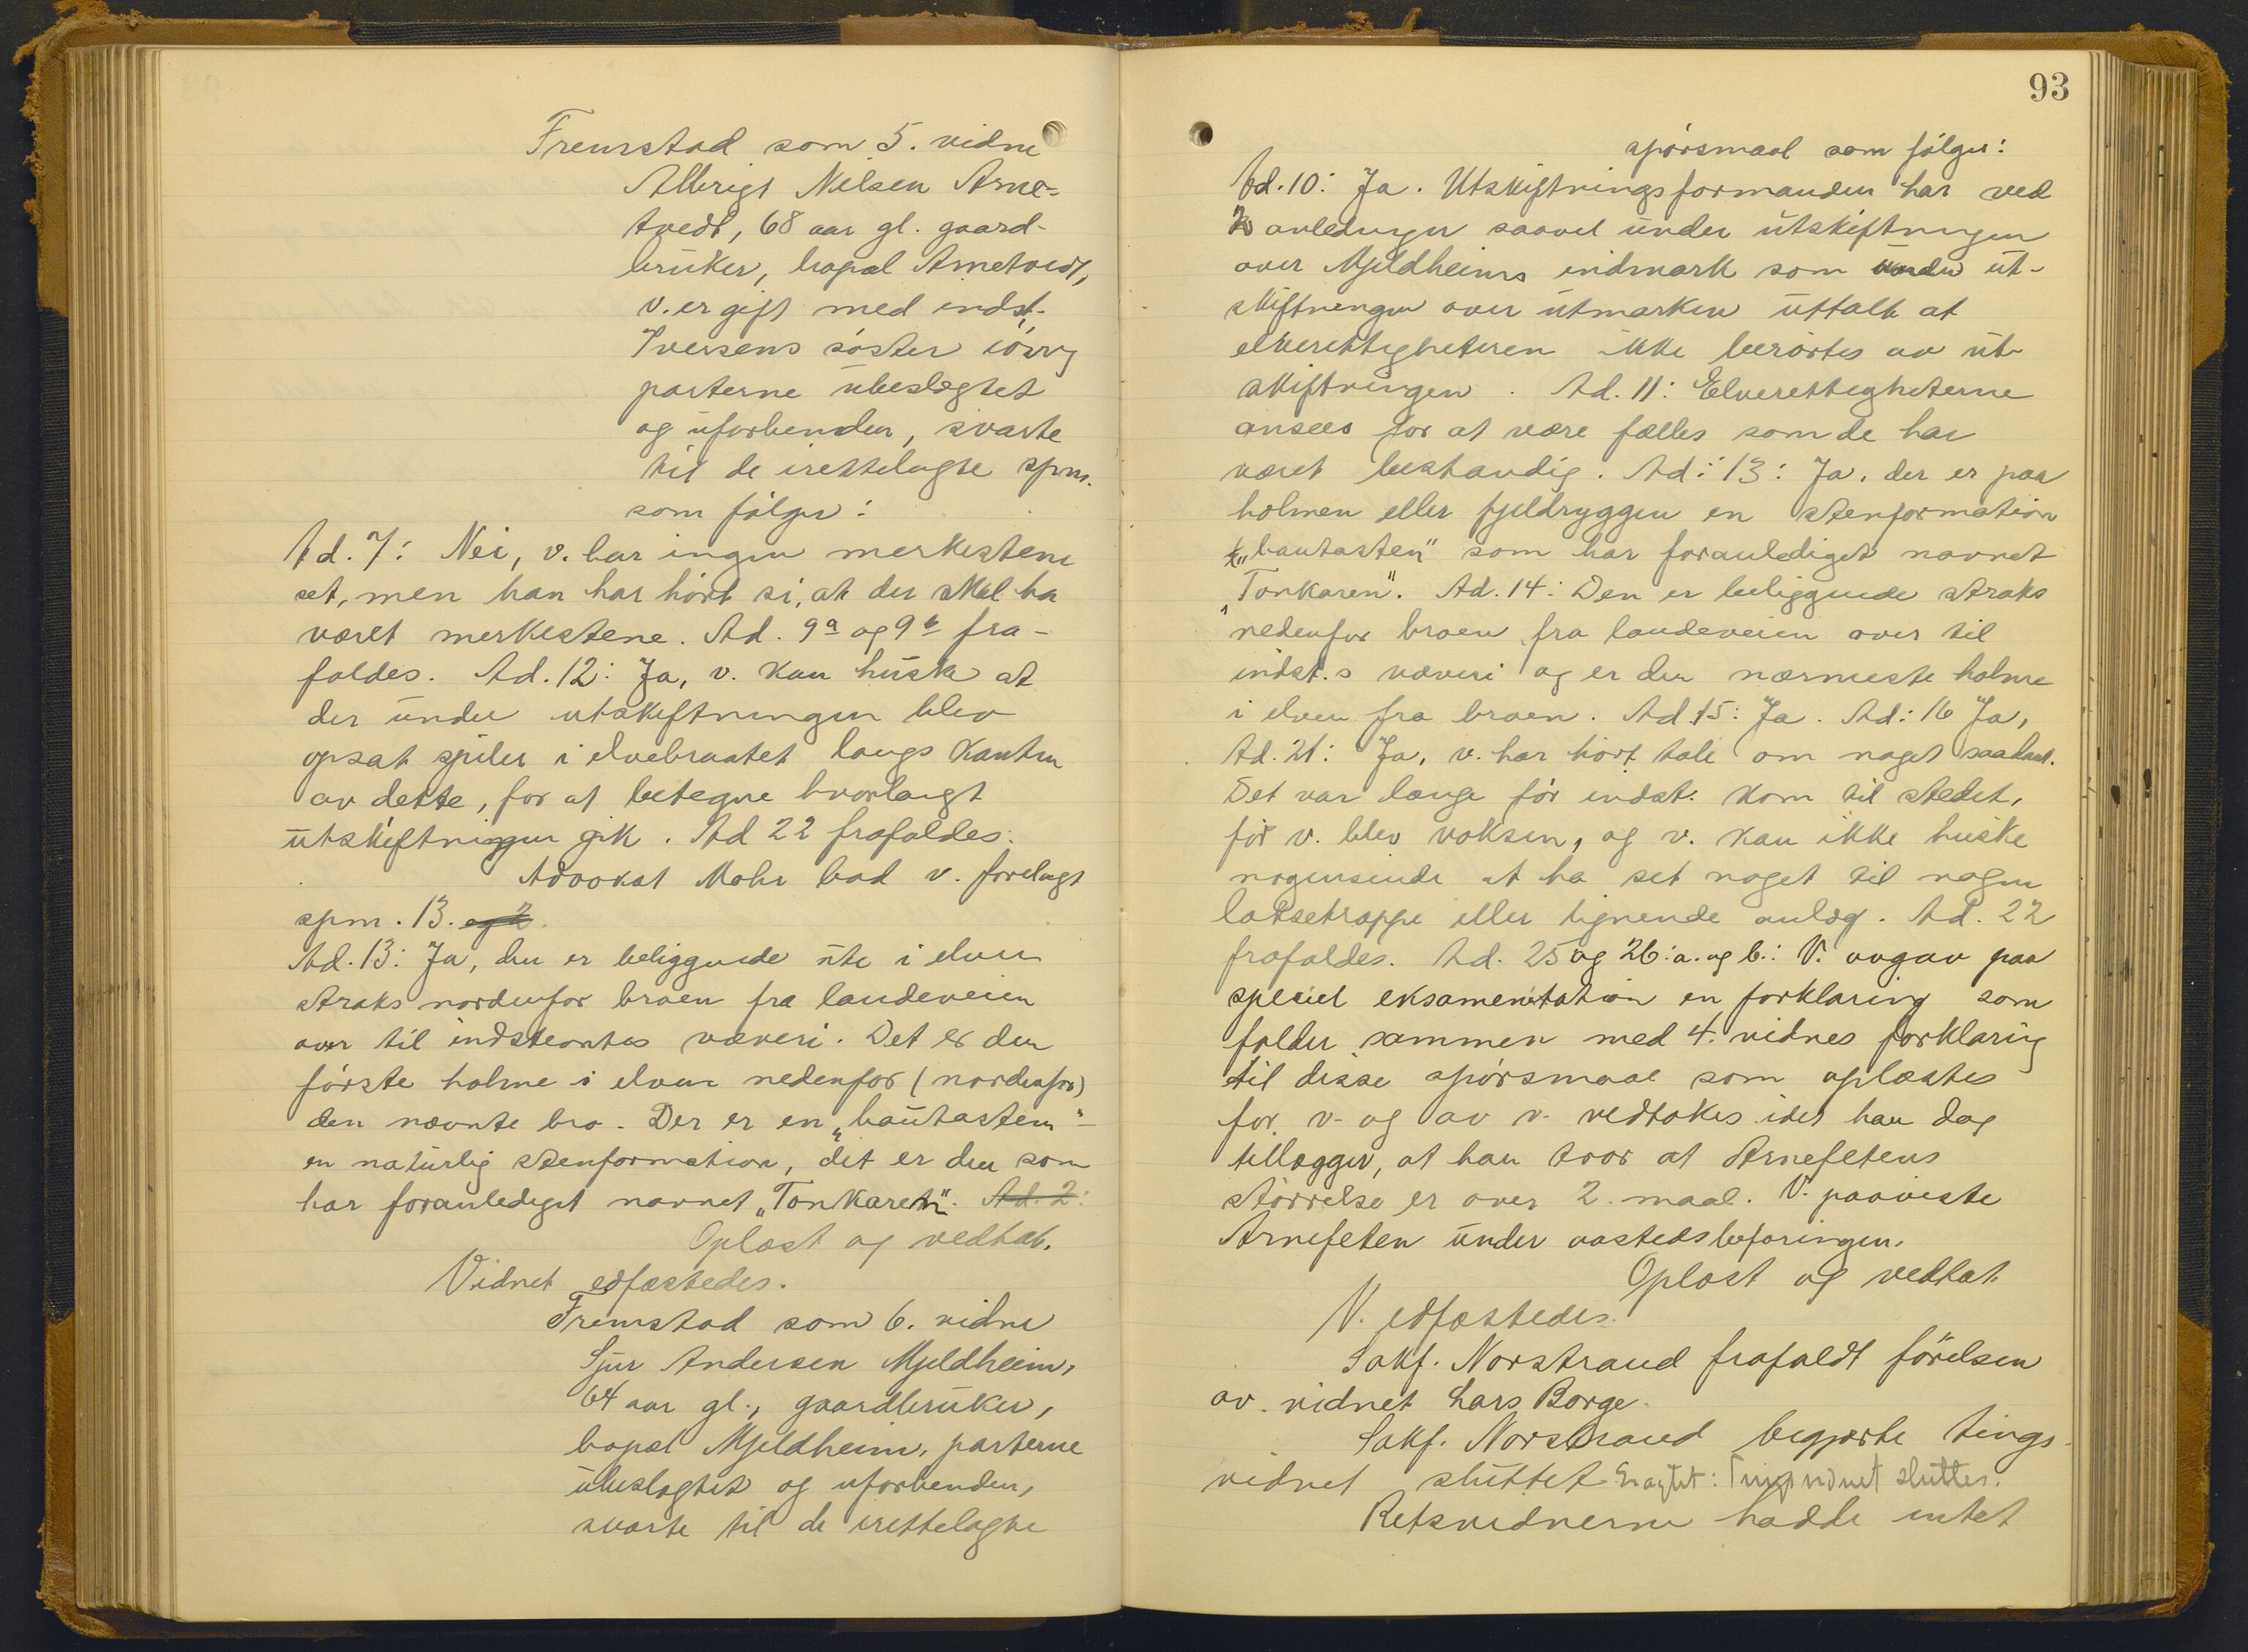 Fremstod som 5. vidne
Albrigt Nilsen Arne-
tvedt, 68 aar gl. gaard-
bruker, bopæl Arnetvedt,
v. er gift med indst.
Iversens søster iøvrig
parterne ubeslegtet
og uforbenden, svarte
til de irettelagte spm.
som følger:
Ad. 7: Nei, v. har ingen merkestene
set, men han har hørt si, at der skal ha
været merkestene. Ad. 9a og 9b fra-
faldes. Ad. 12: Ja, v. kan huske at
der under utskiftningen blev
opsat spiler i elvebraatet langs kanten
av dette, for at betegne hvorlangt
utskiftningen gik. Ad 22 frafaldes.
Advokat Mohr bad v. forelagt
spm. 13. og 2.
Ad. 13: Ja, den er beliggende ute i elven
straks nordenfor broen fra landeveien
over til indstevntes væveri. Det er den
første holme i elven nedenfor (nordenfor)
den nævnte bro. Der er en „bautasten"-
en naturlig stenformation, det er den som
har foranlediget navnet „Tonkaren". Ad. 2:
Oplæst og vedtat.
Vidnet edfæstedes.
Fremstod som 6. vidne
Sjur Andersen Mjeldheim,
64 aar gl., gaardbruker,
bopæl Mjeldheim, parterne
ubeslegtet og uforbenden,
svarte til de irettelagte
93
spørsmaal som følger:
Ad. 10: Ja. Utskiftningsformanden har ved
2 anledninger saavel under utskiftningen
over Mjeldheims indmark som under ut-
skiftningen over utmarken uttalt at
elverettigheteren ikke berørtes av ut-
skiftningen. Ad. 11: Elverettigheterne
ansees for at være fælles som de har
været bestandig. Ad: 13: Ja, der er paa
holmen eller fjeldryggen en stenformation
„bautasten" som har foranlediget navnet
„Tonkaren". Ad. 14: Den er beliggende straks
nedenfor broen fra landeveien over til
indst.s væveri og er den nærmeste holme
i elven fra broen. Ad. 15: Ja. Ad: 16 Ja,
Ad. 21: Ja, v. har hørt tale om noget saadant.
Det var længe før indst. kom til stedet,
før v. blev voksen, og v. kan ikke huske
nogensinde at ha set noget til nogen
laksetrappe eller lignende anlæg. Ad. 22
frafaldes. Ad. 25 og 26: a. og b.: V. avgav paa
speciel eksamenitation en forklaring som
falder sammen med 4. vidnes forklaring
til disse spørsmaal som oplæstes
for v. og av v. vedtokes idet han dog
tillægger, at han tror at Arnefetens
størrelse er over 2 maal. V. paaviste
Arnefeten under aastedsbefaringen.
Oplæst og vedtat
V. edfæstedes.
Sakf. Norstrand frafaldt førelsen
av vidnet Lars Borge.
Sakf. Norstrand begjærte tings-
vidnet sluttet. Eragtet: Tingsvidnet sluttes.
Retsvidnerne hadde intet